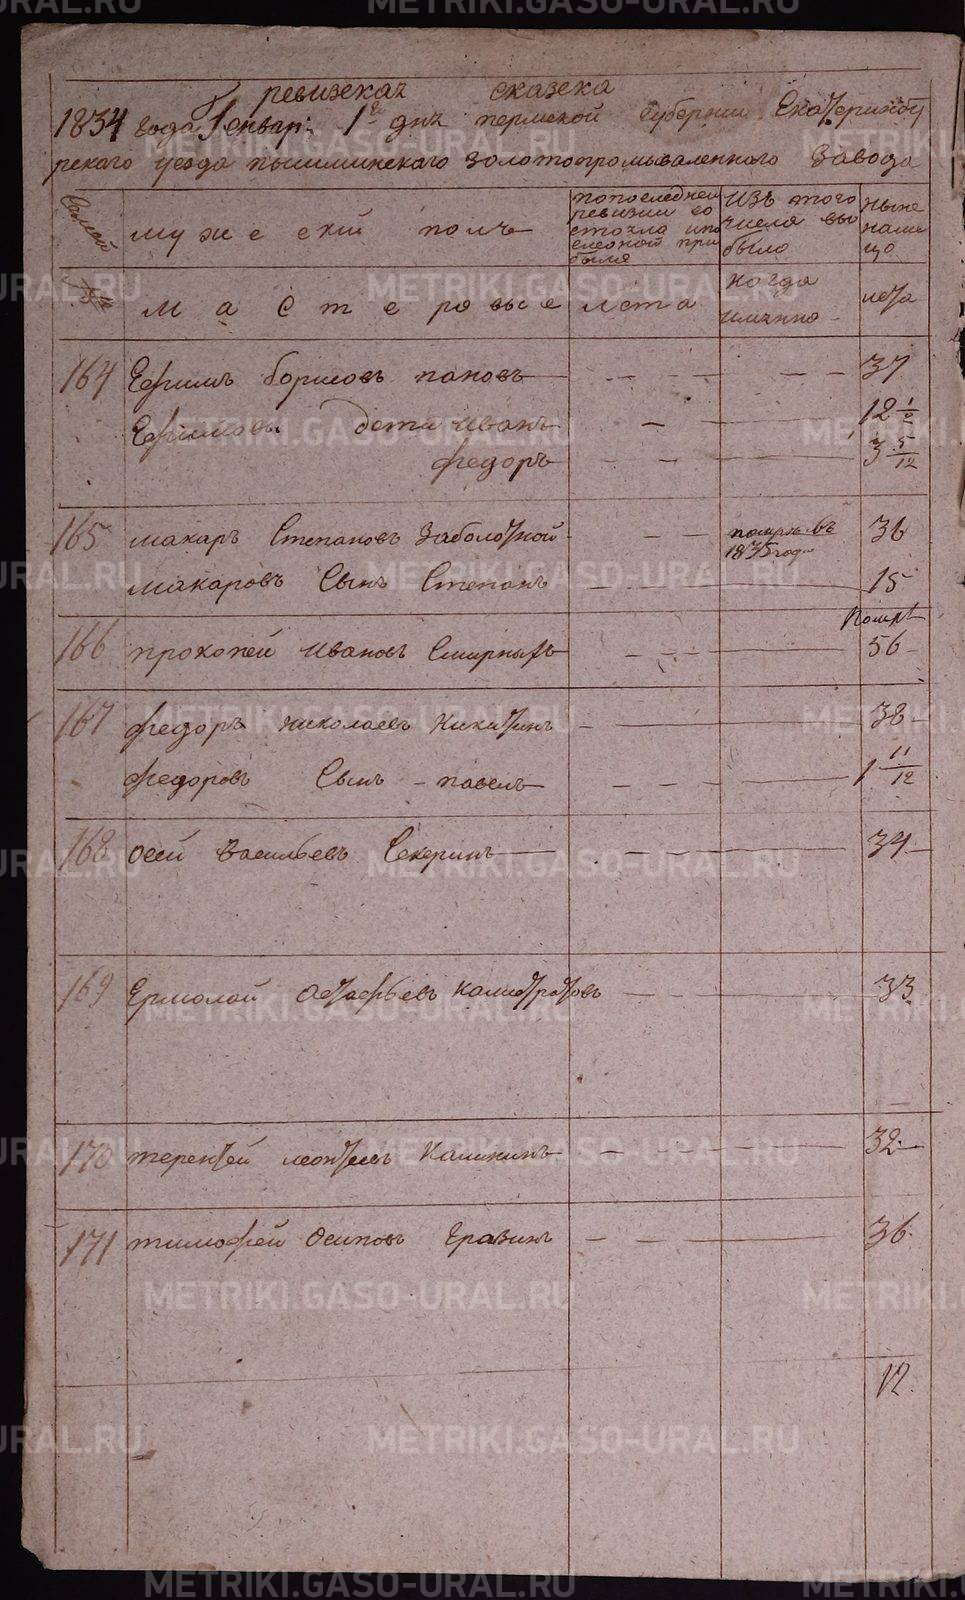 ревизская сказска
1834 года Генвар: 1го дня пермской Губернии Екатеринбу
рского уезда пышминского золотопромываленного завода
мужескій полъ
по последней ревизии со стояло и по слеоной при были
изъ того числа вы было
ныне налицо
мастеровые
лета
когда имянно
лета
164 Ефимъ борисовъ пановъ — — — 37
Ефимовы дети иванъ — 12 1/2
федоръ — — 3 5/12
165 макаръ Степановъ Заболотной — — померъ въ 1835 годе 36
макаровъ Сынъ Степанъ — — — 15
помръ
166 прокопей ивановъ Смирныхъ — — — 56
167 федоръ николаевъ Никитинъ — — — 38
федоровъ Сынъ павелъ — — — 1 11/12
168 осей васильевъ Секеринъ — — — 34
169 Ермолай астафьевъ калистратовъ — — — 33
170 терентей леонтьевъ Калининъ — — — 32
171 тимофей Осиповъ Еразинъ — — — 36
12.
METRIKI.GASO-URAL.RU